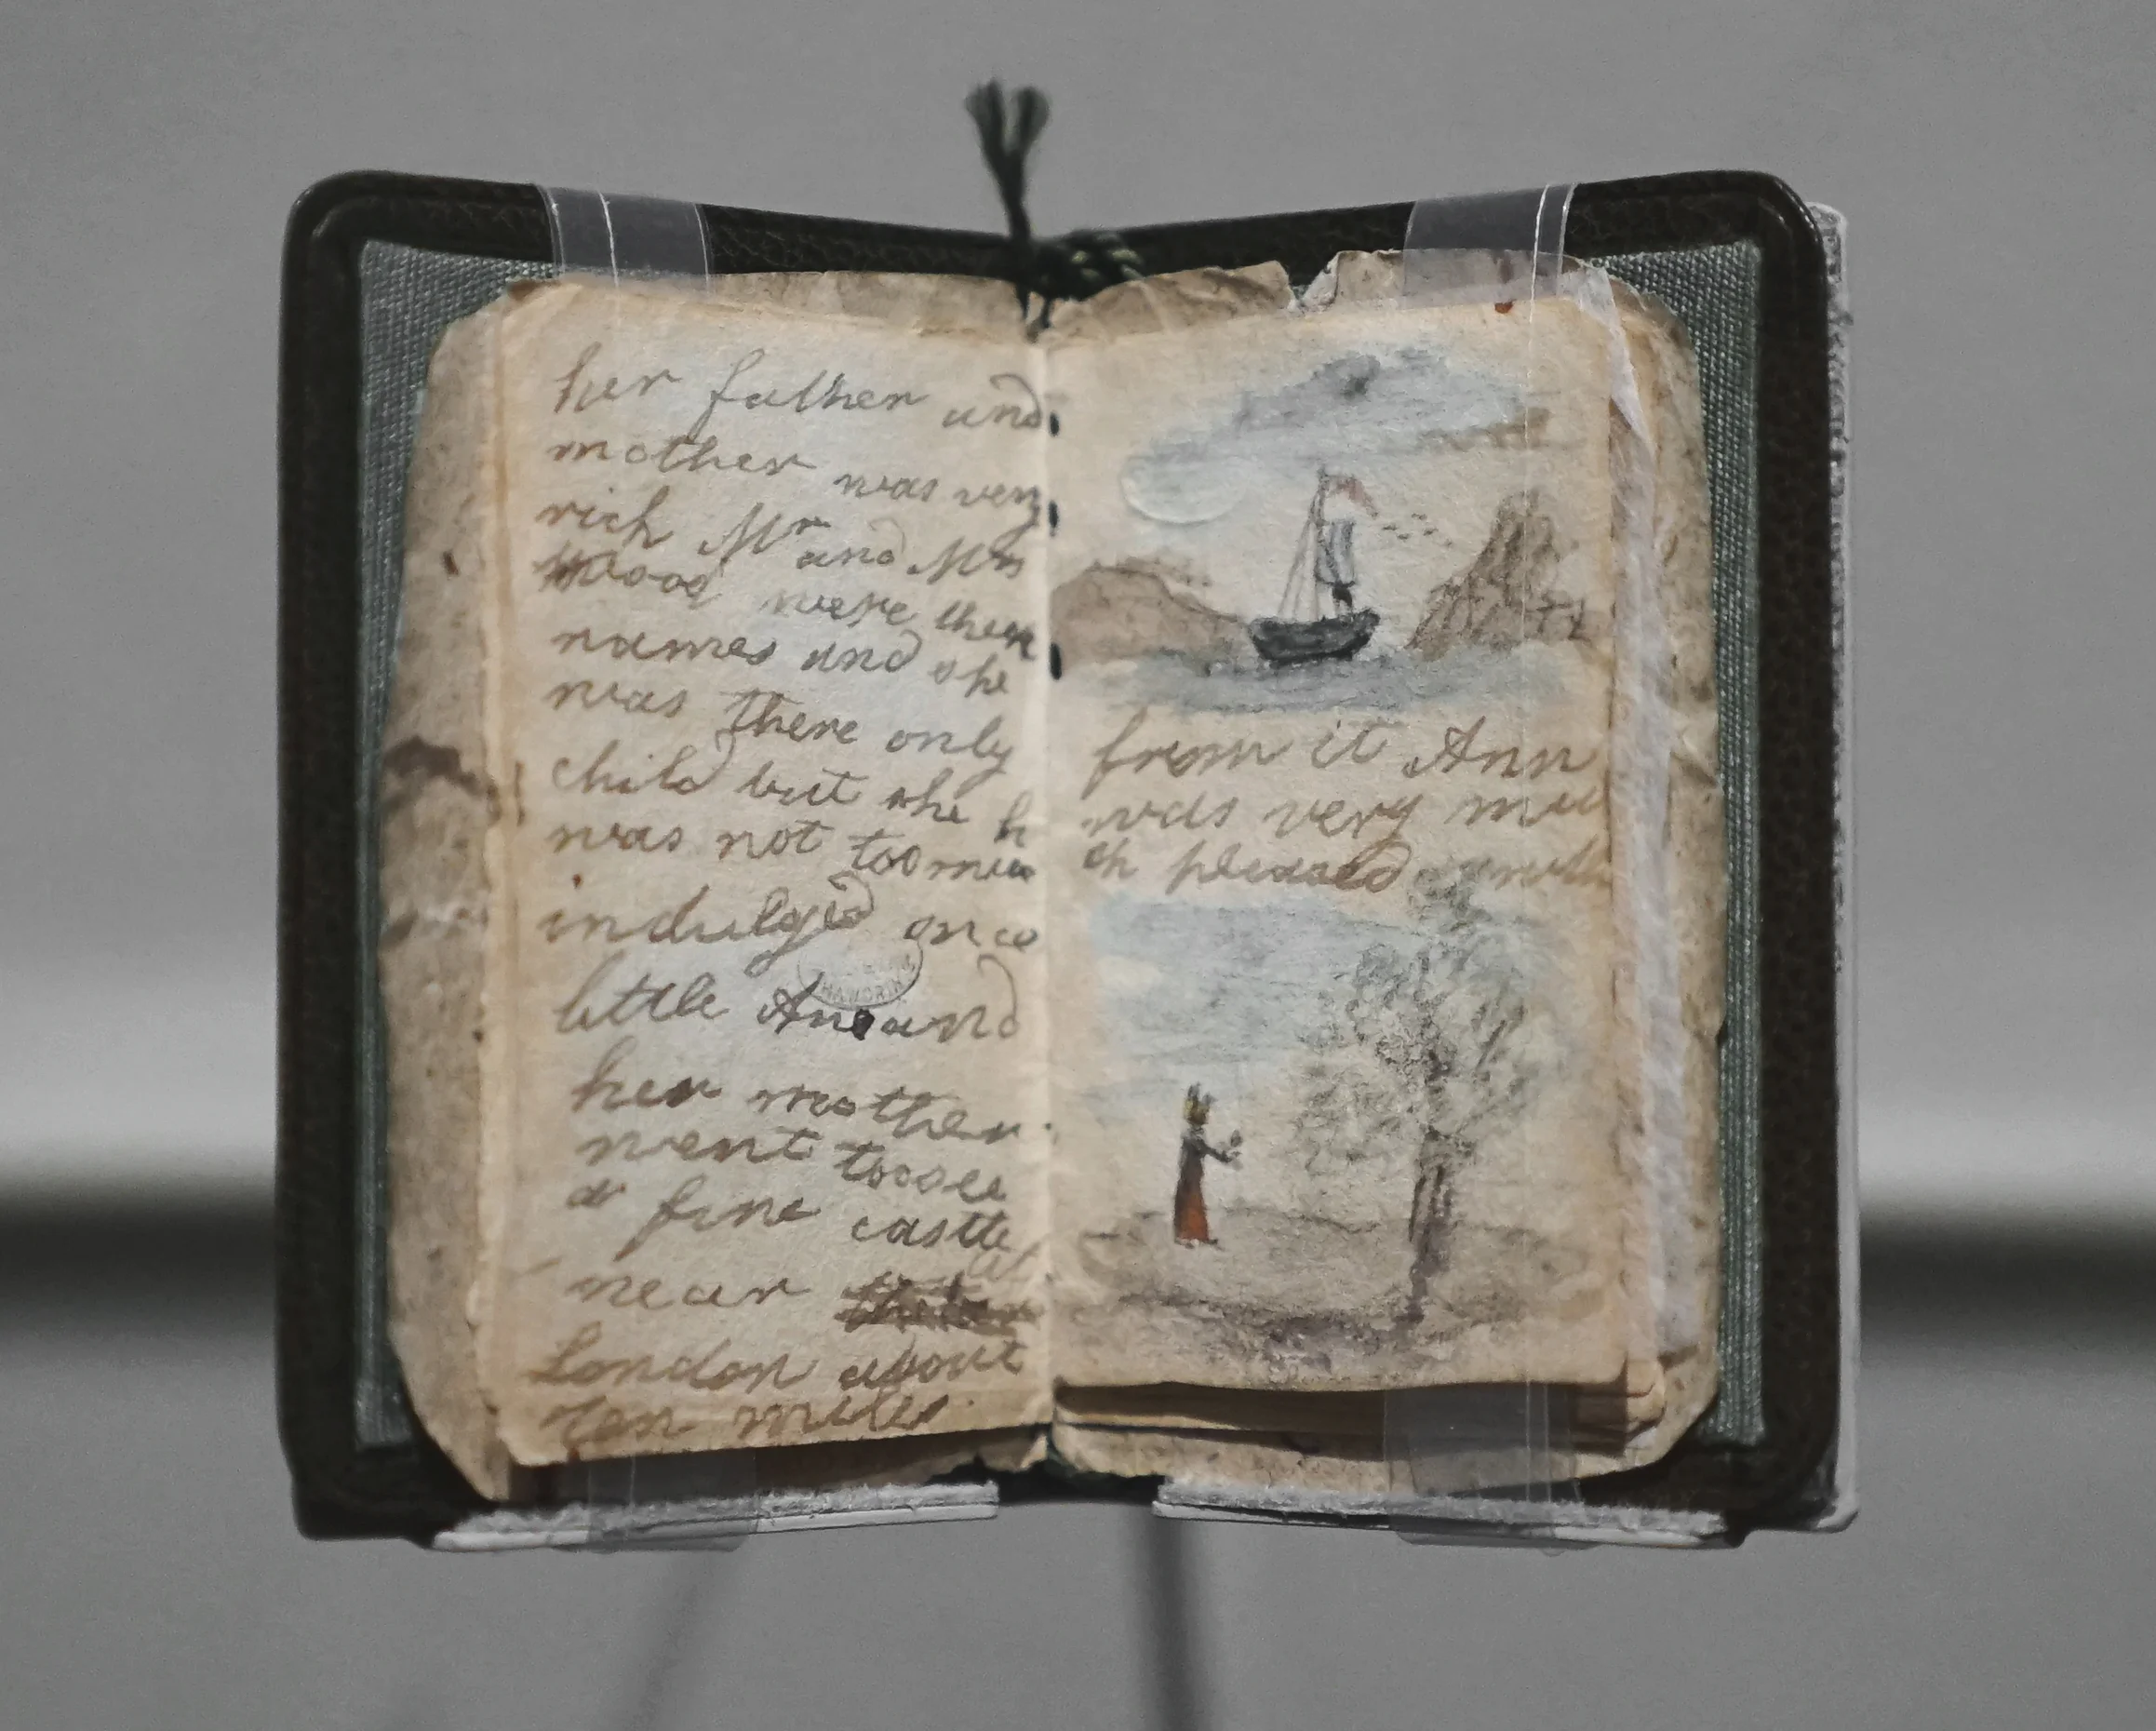 her father and
mother was very
rich Mr and Mrs
Wood were their
names and she
was there only
child but she
was not too muc
indulged once
little Ane and
her mother
went to see
a fine castle
near
London about
ten miles.
HAWORTH
from it Ann
was very mu
ch pleased with